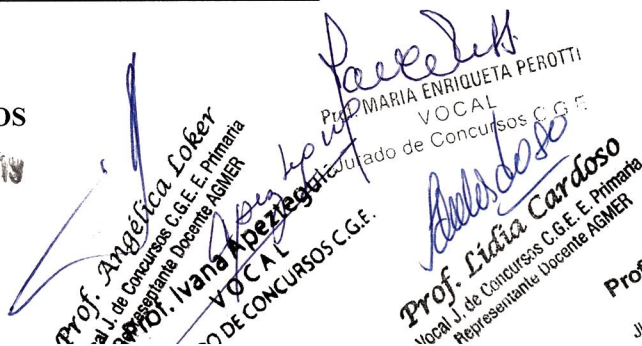 OS
Prof. Angélica Loker
Vocal J. de Concursos C.G.E. E. Primaria
Representante Docente AGMER
Prof. Ivana Apeztegui
VOCAL
DO DE CONCURSOS C.G.E.
Prof. MARIA ENRIQUETA PEROTTI
VOCAL
Jurado de Concursos C.G.E.
Prof. Lidia Cardoso
Vocal J. de Concursos C.G.E. E. Primaria
Representante Docente AGMER
Prof